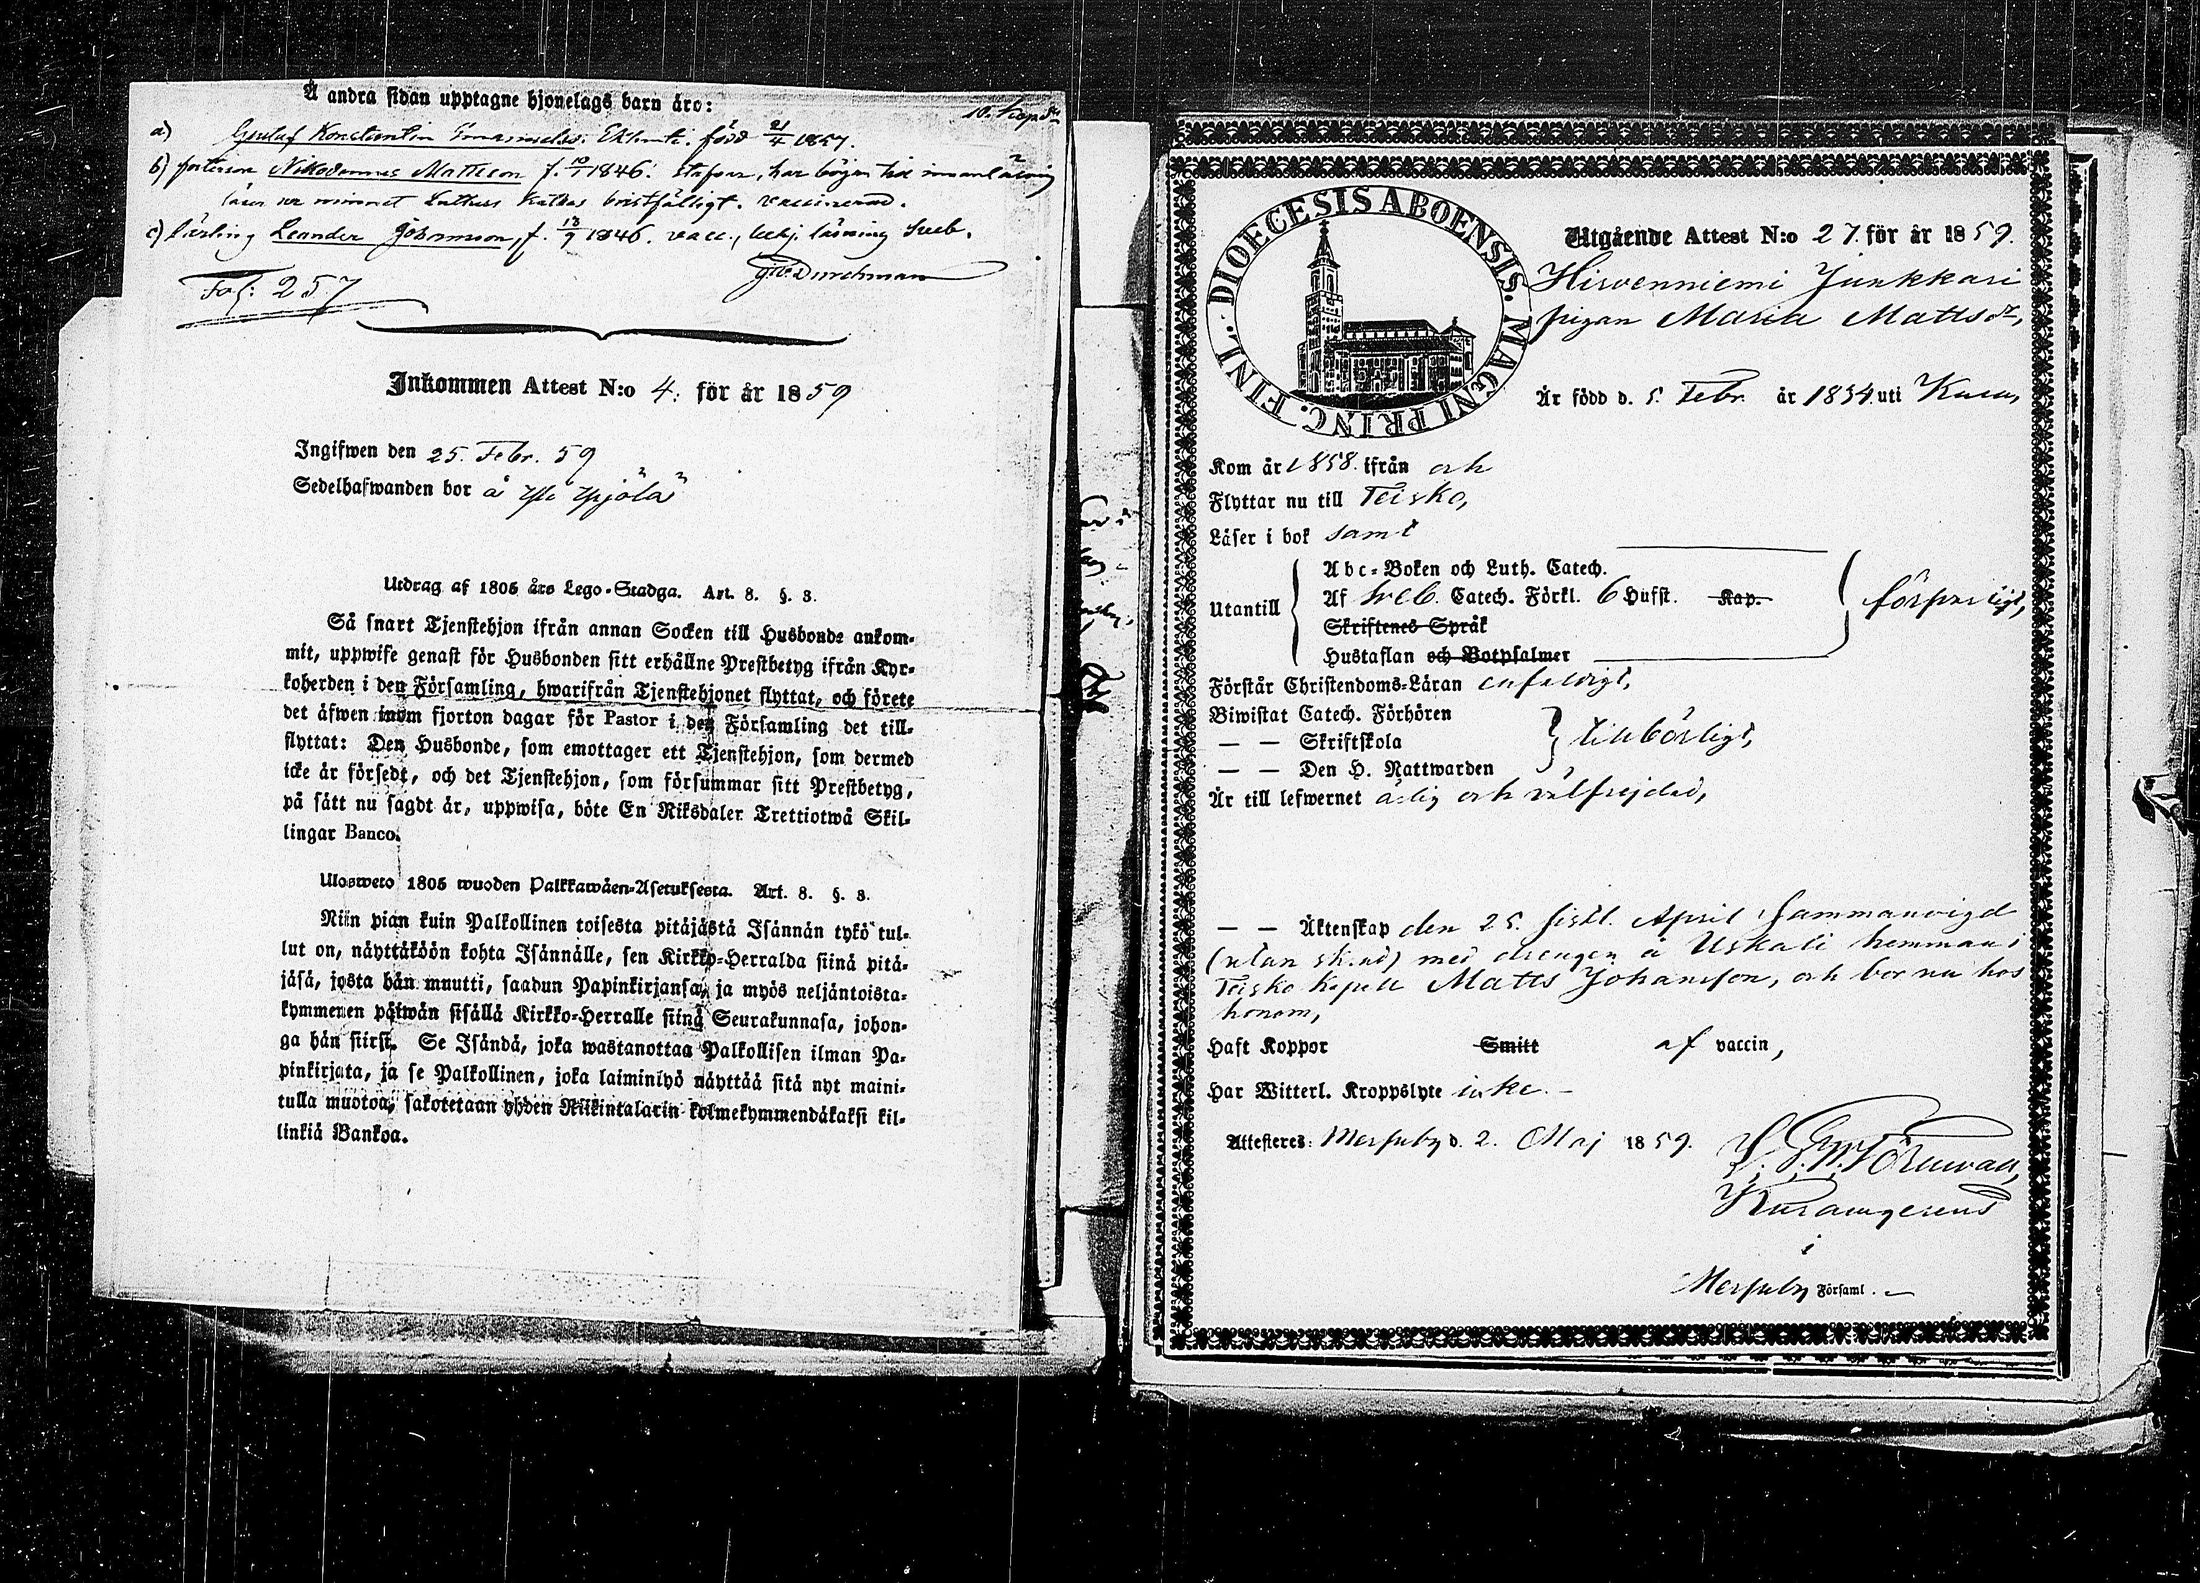 Å andra sidan upptagne hjonelags barn äro:
a) Gustaf Konstantin Emanuelss. född 21/4 1857.
b) fosterson Nikodemus Mattsson f. 10/1 1846. stafvar, har börjat till innanläsning
minnet Luthers bristfälligt. vaccinerad.
c) lärling Leander Johansson, f. 13/9 1846. vacc.,
Durchman
Fol: 257
Inkommen Attest N:o 4. för år 1859
Ingifwen den 25. Febr. 59
Sedelhafwanden bor å
Utdrag af 1805 års Lego-Stadga. Art. 8. §. 3.
Så snart Tjenstehjon ifrån annan Socken till Husbonde ankom-
mit, uppwise genast för Husbonden sitt erhållne Prestbetyg ifrån Kyr-
koherden i den Församling, hwarifrån Tjenstehjonet flyttat, och förete
det äfwen inom fjorton dagar för Pastor i den Församling det till-
flyttat: Den Husbonde, som emottager ett Tjenstehjon, som dermed
icke är försedt, och det Tjenstehjon, som försummar sitt Prestbetyg,
på sätt nu sagdt är, uppwisa, böte En Riksdaler Trettiotwå Skil-
lingar Banco.
Ulosweto 1805 wuoden Palkkawäen-Asetuksesta. Art. 8. §. 3.
Niin pian kuin Palkollinen toisesta pitäjästä Isännän tykö tul-
lut on, näyttäköön kohta Isännälle, sen Kirkko-Herralda siinä pitä-
jäsä, josta hän muutti, saadun Papinkirjansa, ja myös neljäntoista-
kymmenen päiwän sisällä Kirkko-Herralle siinä Seurakunnasa, johon-
ga hän siirsi. Se Isändä, joka wastanottaa Palkollisen ilman Pa-
pinkirjata, ja se Palkollinen, joka laiminlyö näyttää sitä nyt maini-
tulla muotoa, sakotetaan yhden Riikintalarin kolmekymmendäkaksi kil-
linkiä Bankoa.
DIOECESIS ABOENSIS. MAGNI PRINC. FINL.
Utgående Attest N:o 27. för år 1859.
Hirvenniemi Junkkari
pigan Maria Mattsdr,
Är född d. 5. Febr. år 1834 uti
Kom år 1858. ifrån och
Flyttar nu till Teisko,
Läser i bok samt
Utantill
Abc-Boken och Luth. Catech.
Af Sveb. Catech. Förkl. 6 Hufst. Kap.
Skriftenes Språk
Hustaflan och Botpsalmer
försvarligt,
Förstår Christendoms-Läran enfaldigt,
Biwistat Catech. Förhören
— — Skriftskola
— — Den H. Nattwarden
tillbörligt,
Är till lefwernet ärlig och välfrejdad,
— — Äktenskap den 25. sistl. April Sammanvigd
(utan) med drengen å Uskali hemman i
Teisko Kapell Matts Johansson, och bor nu hos
honom,
Haft Koppor Smitt af vaccin,
Har Witterl. Kroppslyte icke. —
Attesteres: Messuby d. 2. Maj 1859.
i
Messuby Församl. —